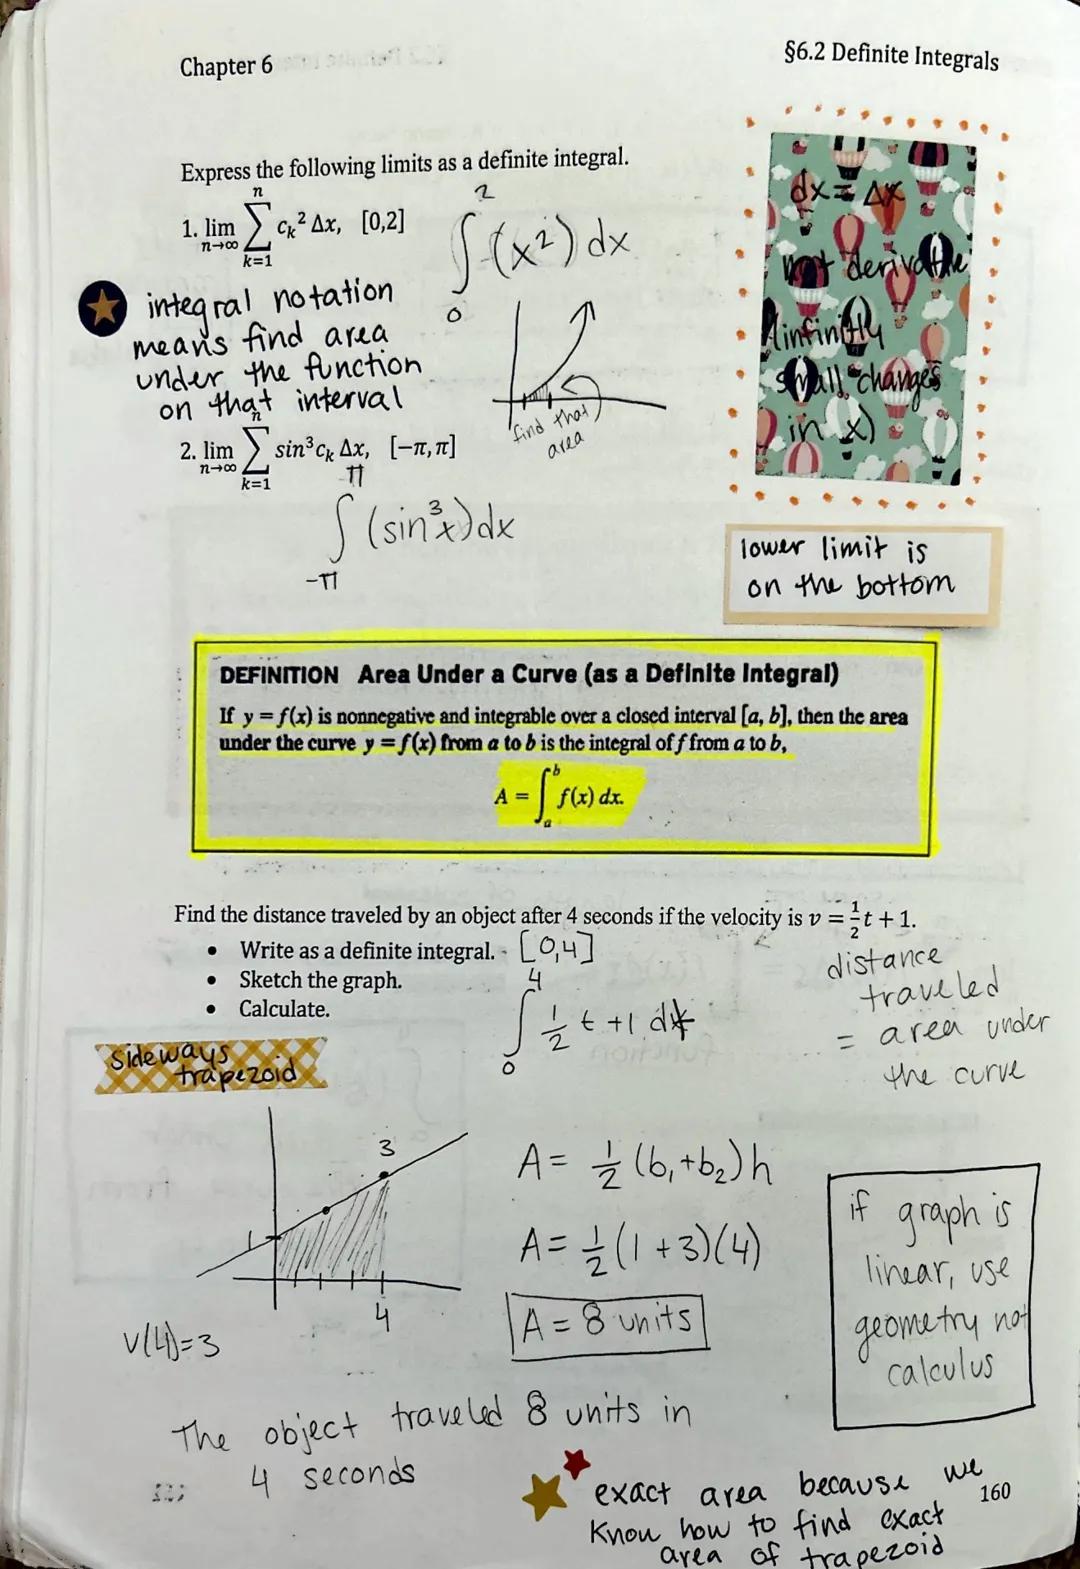 Chapter 6
§6.2 Definite Integrals
Express the following limits as a definite integral.
1. lim n→∞ n ∑ k=1 cₖ² Δx, [0,2]
2
∫ (x²) dx
0
dx = Δx
not derivative
(infinitly
small changes
in x)
integral notation
means find area
under the function
on that interval
find that
area
2. lim n→∞ n ∑ k=1 sin³cₖ Δx, [−π, π]
π
∫ (sin³x)dx
-π
lower limit is
on the bottom
DEFINITION Area Under a Curve (as a Definite Integral)
If y = f(x) is nonnegative and integrable over a closed interval [a, b], then the area
under the curve y = f(x) from a to b is the integral of f from a to b,
A = ∫ₐᵇ f(x) dx.
Find the distance traveled by an object after 4 seconds if the velocity is v = ½t + 1.
• Write as a definite integral. - [0,4]
• Sketch the graph.
• Calculate.
4
∫ ½ t +1 dt
0
distance
traveled
= area under
the curve
sideways
trapezoid
3
1
4
V(4)=3
A= ½ (b₁+b₂)h
A= ½ (1+3)(4)
A = 8 units
if graph is
linear, use
geometry not
calculus
The object traveled 8 units in
4 seconds
exact area because we
know how to find exact
area of trapezoid
160